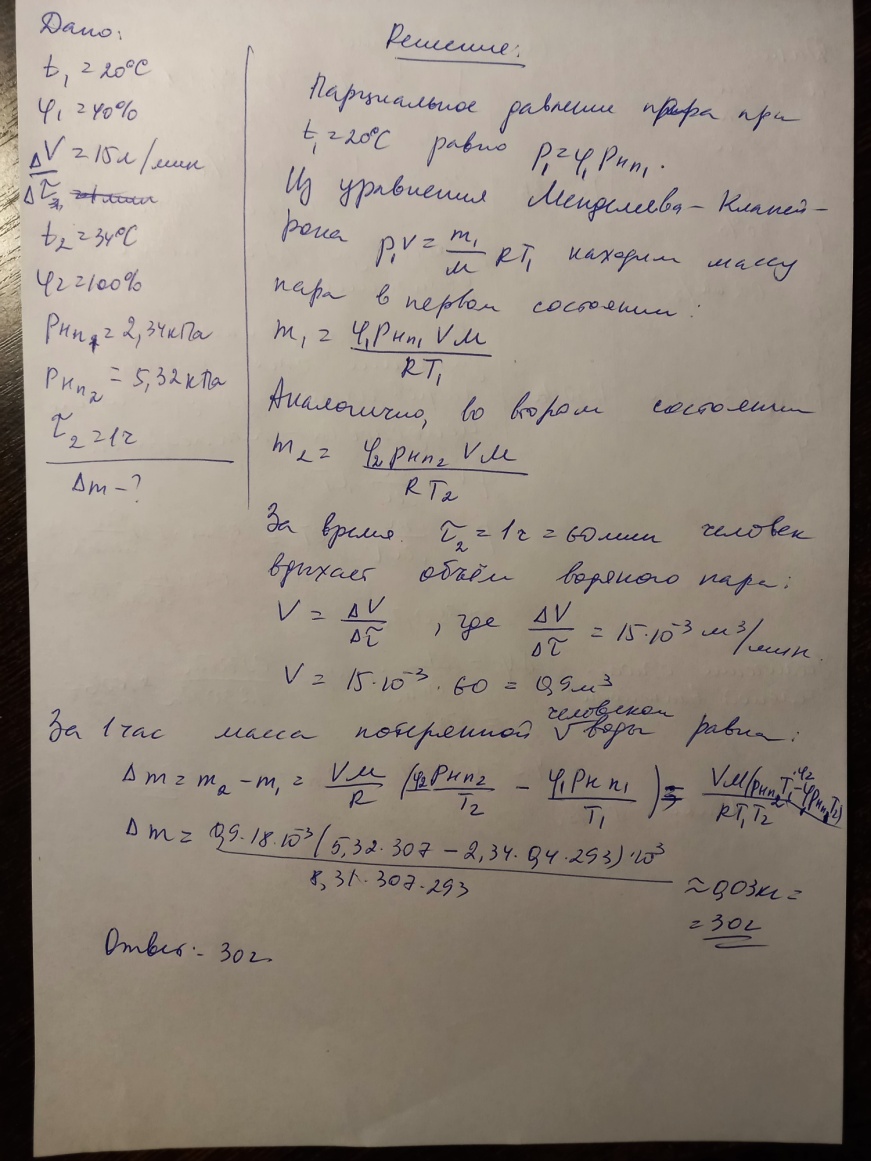 Дано:
t₁ = 20°C
φ₁ = 40%
ΔV/Δτ = 15 л/мин
t₂ = 34°C
φ₂ = 100%
Pнп₁ = 2,34 кПа
Pнп₂ = 5,32 кПа
τ₂ = 1ч
Δm - ?
Решение:
Парциальное давление пара при
t₁ = 20°C равно P₁ = φ₁ Pнп₁.
Из уравнения Менделеева-Клапей-
рона p₁V = m₁/M RT₁ находим массу
пара в первом состоянии:
m₁ = φ₁Pнп₁VM / RT₁
Аналогично, во втором состоянии
m₂ = φ₂Pнп₂VM / RT₂
За время τ₂ = 1ч = 60мин человек
вдыхает объём водяного пара:
V = ΔV/Δτ, где ΔV/Δτ = 15·10⁻³ м³/мин.
V = 15·10⁻³ · 60 = 0,9м³
За 1 час масса потерянной человеком воды равна:
Δm = m₂ - m₁ = VM/R (φ₂Pнп₂/T₂ - φ₁Pнп₁/T₁) = VM(Pнп₂T₁·φ₂ - φ₁Pнп₁T₂) / RT₁T₂
Δm = 0,9·18·10⁻³(5,32·307 - 2,34·0,4·293)·10³ / 8,31·307·293 ≈ 0,03кг =
= 30г
Ответ: - 30г.